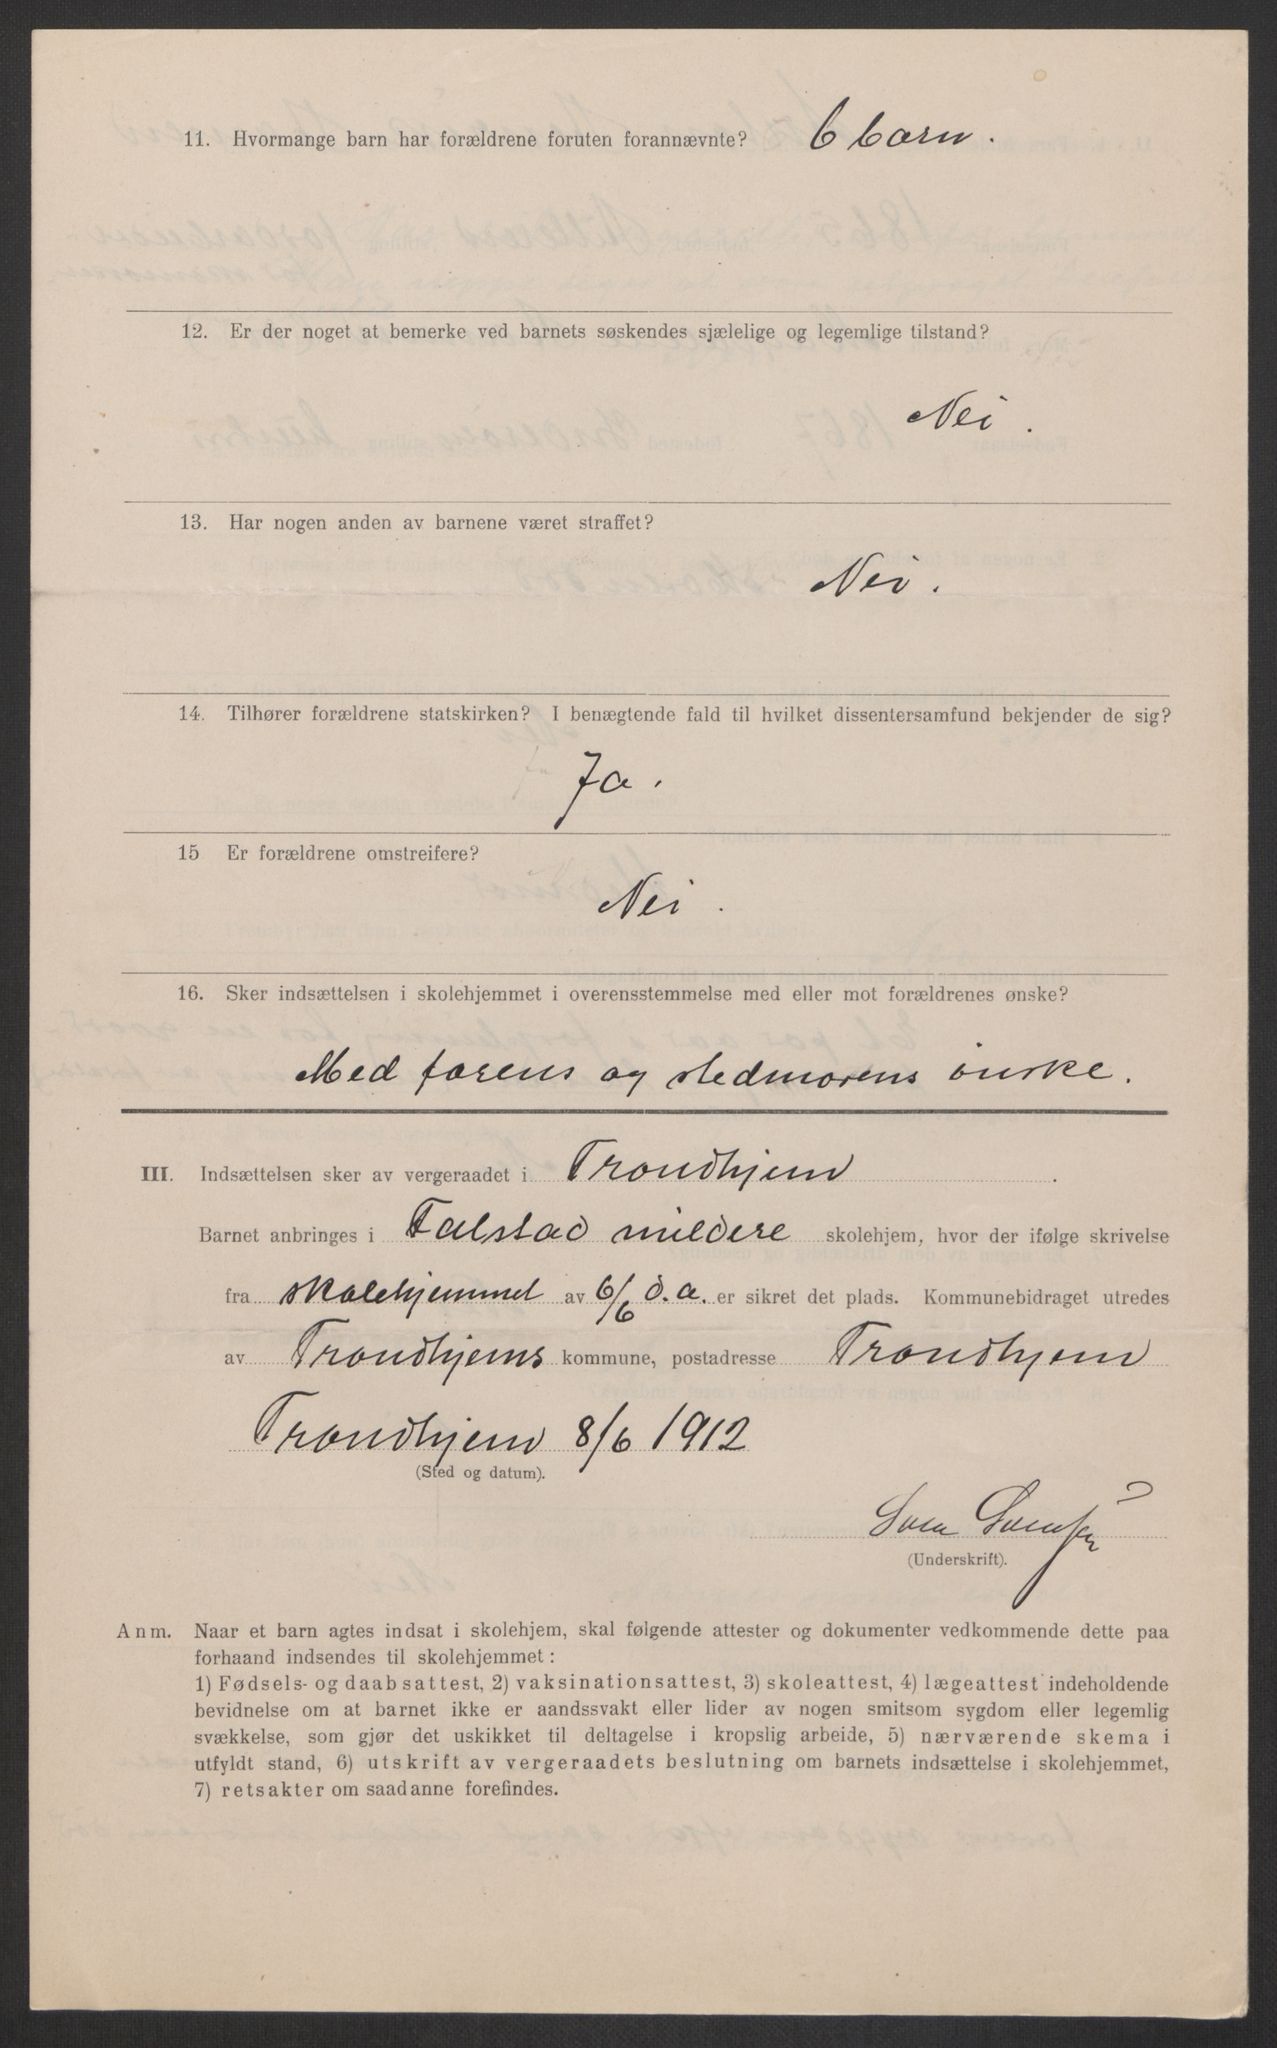 11. Hvormange barn har forældrene foruten forannævnte? 6 barn.
12. Er der noget at bemerke ved barnets søskendes sjælelige og legemlige tilstand?
Nei.
13. Har nogen anden av barnene været straffet?
Nei.
14. Tilhører forældrene statskirken? I benægtende fald til hvilket dissentersamfund bekjender de sig?
Ja.
15 Er forældrene omstreifere?
Nei.
16. Sker indsættelsen i skolehjemmet i overensstemmelse med eller mot forældrenes ønske?
Med farens og stedmorens ønske.
III. Indsættelsen sker av vergeraadet i Trondhjem
Barnet anbringes i Falstad mildere skolehjem, hvor der ifølge skrivelse
fra skolehjemmet av 6/6 d.a. er sikret det plads. Kommunebidraget utredes
av Trondhjems kommune, postadresse Trondhjem
Trondhjem 8/6 1912
(Sted og datum).
Sven Svensen
(Underskrift).
Anm. Naar et barn agtes indsat i skolehjem, skal følgende attester og dokumenter vedkommende dette paa
forhaand indsendes til skolehjemmet:
1) Fødsels- og daabsattest, 2) vaksinationsattest, 3) skoleattest, 4) lægeattest indeholdende
bevidnelse om at barnet ikke er aandssvakt eller lider av nogen smitsom sygdom eller legemlig
svækkelse, som gjør det uskikket til deltagelse i kropslig arbeide, 5) nærværende skema i
utfyldt stand, 6) utskrift av vergeraadets beslutning om barnets indsættelse i skolehjemmet,
7) retsakter om saadanne forefindes.